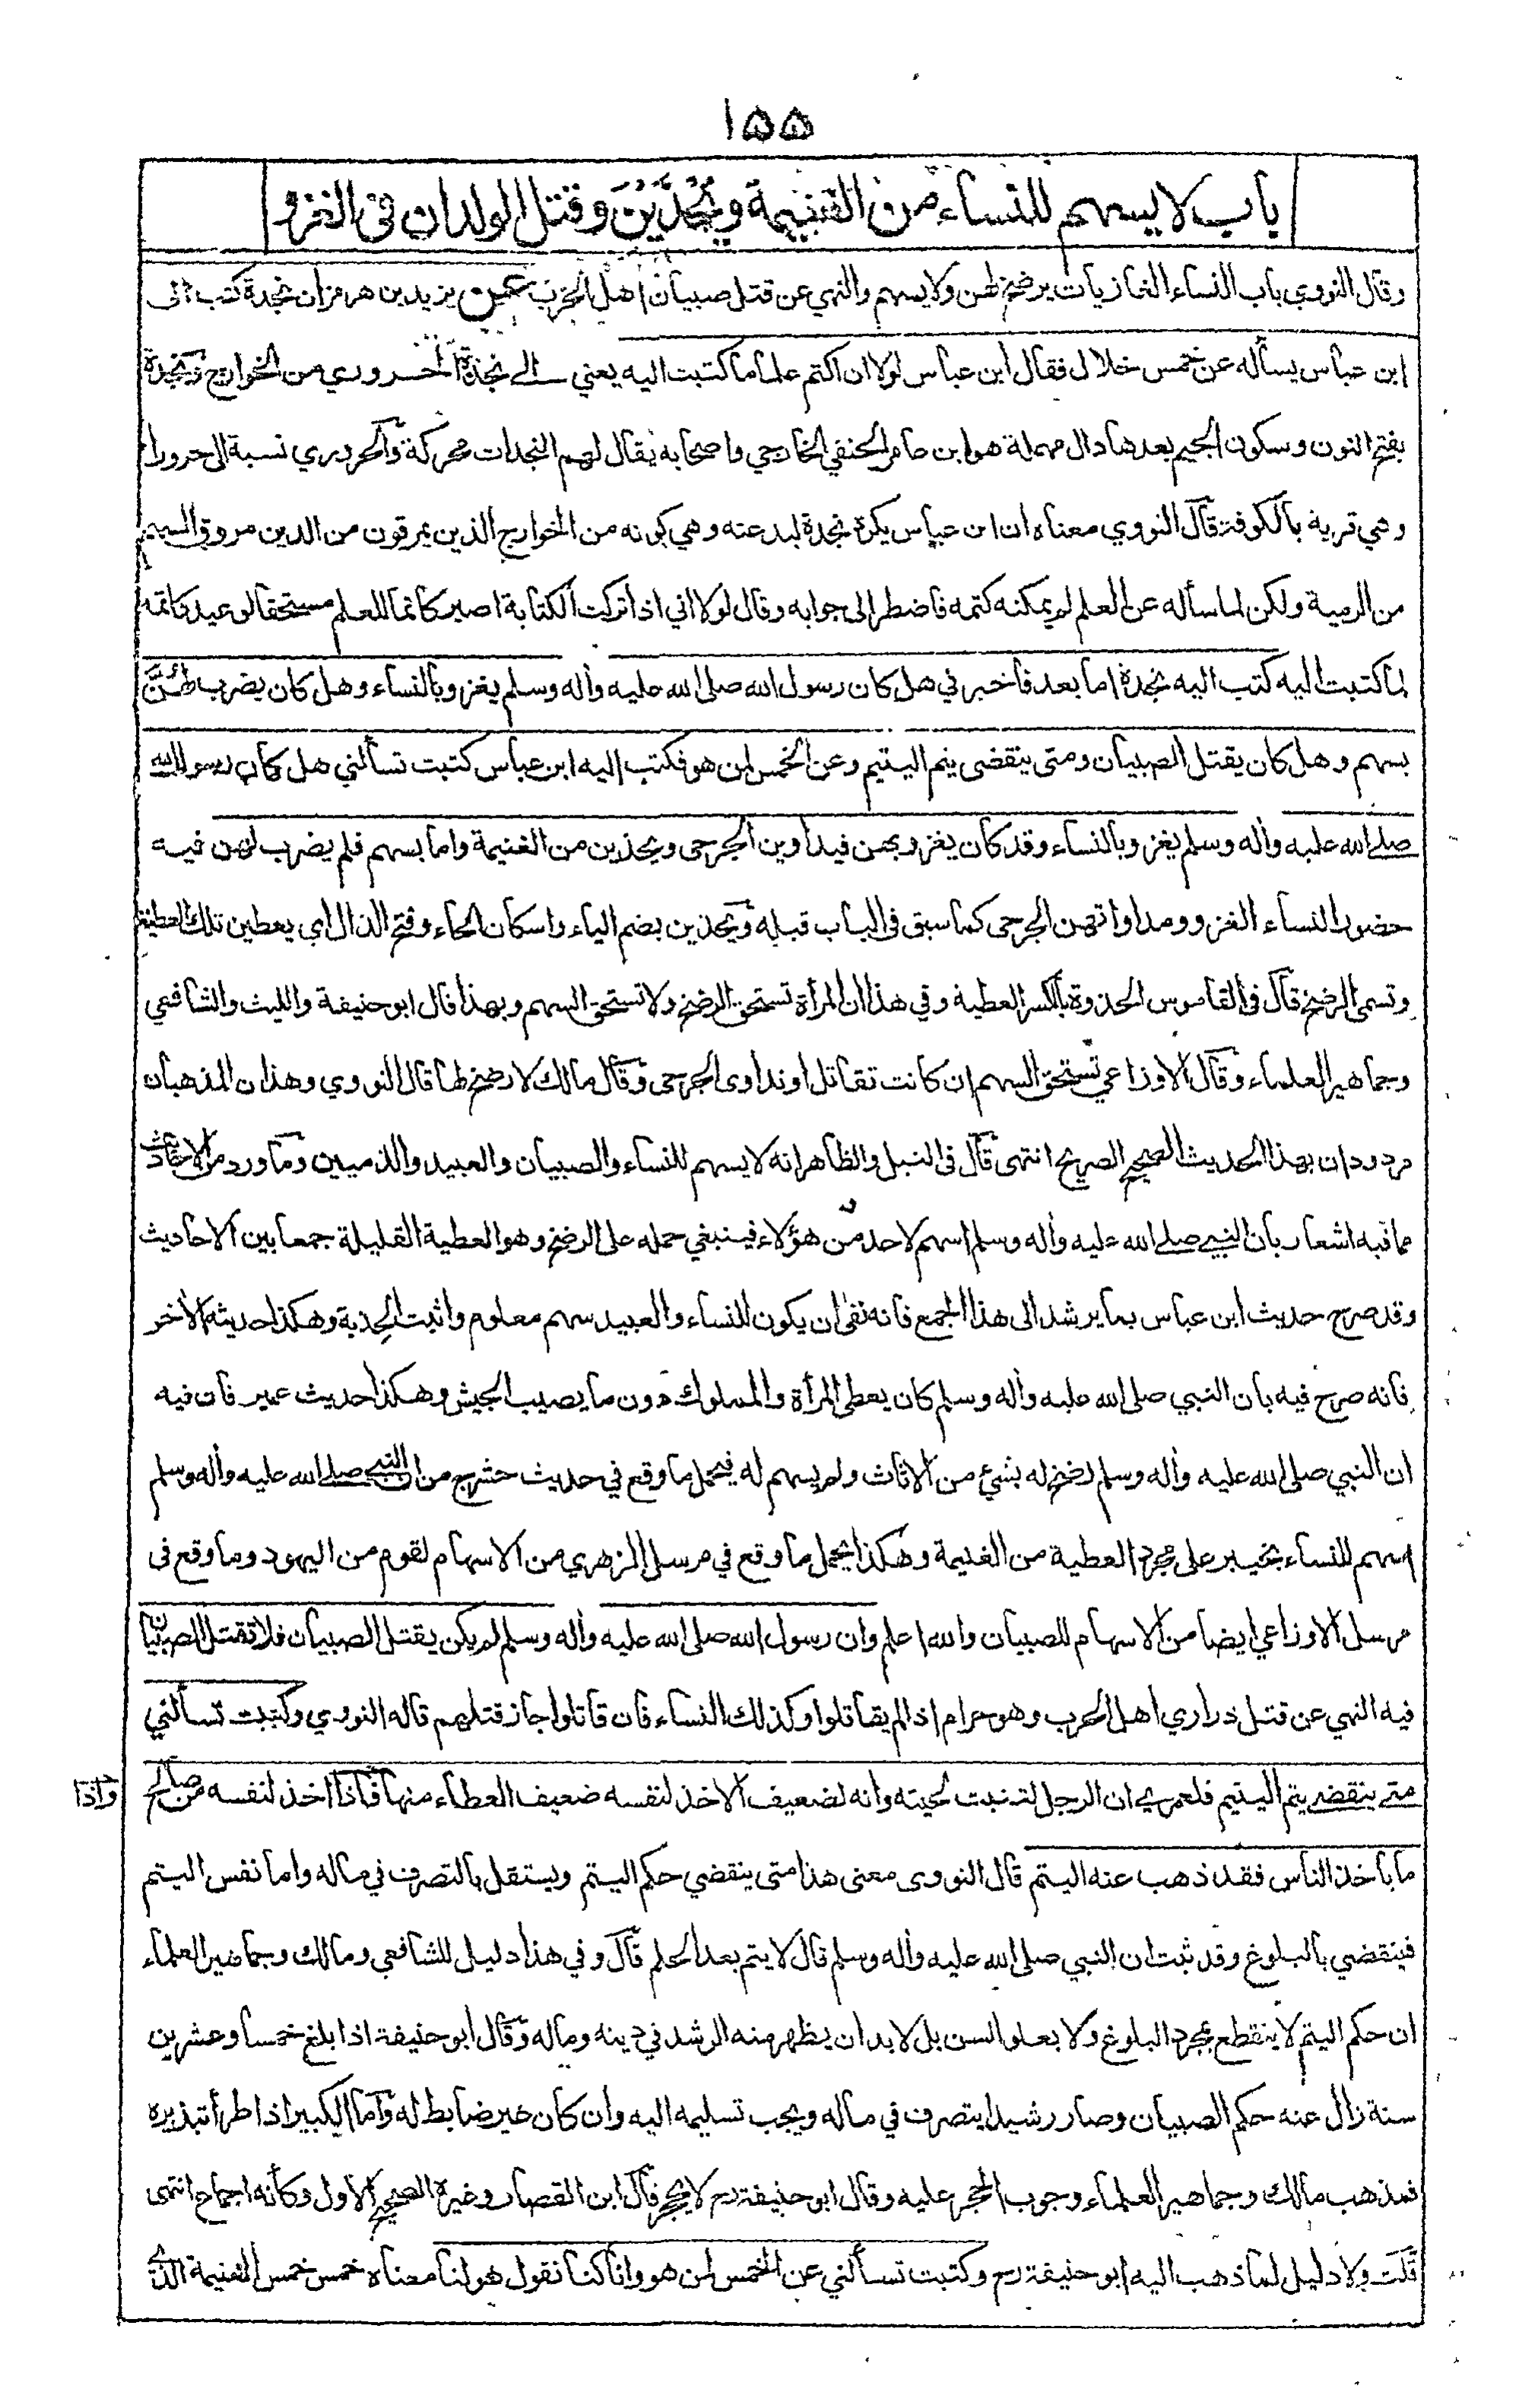 ١٥٥
باب لا يسهم للنساء من الغنيمة ويحذين وقتل الولدان في الغزو
وقال النووي باب النساء الغازيات يرضخ لهن ولا يسهم والنهي عن قتل صبيان اهل الحرب عن يزيد بن هرمز ان نجدة كتب الى
ابن عباس يسأله عن خمس خلال فقال ابن عباس لولا ان اكتم علما ما كتبت اليه يعني الى نجدة الحروري من الخوارج ونجدة
بفتح النون وسكون الجيم بعدها دال مهملة هو ابن عامر الحنفي الخارجي واصحابه يقال لهم النجدات محركة والحروري نسبة الى حروراء
وهي قرية بالكوفة قال النووي معناه ان ابن عباس يكره نجدة لبدعته وهي كونه من الخوارج الذين يمرقون من الدين مروق السهم
من الرمية ولكن لما سأله عن العلم لم يمكنه كتمه فاضطر الى جوابه وقال لولا اني اذا تركت الكتابة اصير كاتما للعلم مستحقا لوعيد كاتمه
لما كتبت اليه كتب اليه نجدة اما بعد فاخبرني هل كان رسول الله صلى الله عليه واله وسلم يغزو بالنساء وهل كان يضرب لهن
بسهم وهل كان يقتل الصبيان ومتى ينقضى يتم اليتيم وعن الخمس لمن هو فكتب اليه ابن عباس كتبت تسألني هل كان رسول الله
صلى الله عليه واله وسلم يغزو بالنساء وقد كان يغزو بهن فيداوين الجرحى ويحذين من الغنيمة واما بسهم فلم يضرب لهن فيه
حضور النساء الغزو ومداواتهن الجرحى كما سبق في الباب قبله ويحذين بضم الياء واسكان الحاء وفتح الذال اي يعطين تلك العطية
وتسمى الرضخ قال في القاموس الحذوة بالكسر العطية وفي هذا ان المرأة تستحق الرضخ ولا تستحق السهم وبهذا قال ابو حنيفة والليث والشافعي
وجماهير العلماء وقال الاوزاعي تستحق السهم ان كانت تقاتل او تداوى الجرحى وقال مالك لا رضخ لها قال النووي وهذان المذهبان
مردودان بهذا الحديث الصحيح الصريح انتهى قال في النيل والظاهر انه لا يسهم للنساء والصبيان والعبيد والذميين وما ورد من الاحاديث
مما فيه اشعار بان النبي صلى الله عليه واله وسلم اسهم لاحد من هؤلاء فينبغي حمله على الرضخ وهو العطية القليلة جمعا بين الاحاديث
وقد صرح حديث ابن عباس بما يرشد الى هذا الجمع فانه نفى ان يكون للنساء والعبيد سهم معلوم واثبت الحذية وهكذا حديثه الاخر
فانه صرح فيه بان النبي صلى الله عليه واله وسلم كان يعطى المرأة والمملوك دون ما يصيب الجيش وهكذا حديث عمير فان فيه
ان النبي صلى الله عليه واله وسلم رضخ له بشيء من الاثاث ولم يسهم له فيحمل ما وقع في حديث حشرج من ان النبي صلى الله عليه واله وسلم
اسهم للنساء بخيبر على مجرد العطية من الغنيمة وهكذا يحمل ما وقع في مرسل الزهري من الاسهام لقوم من اليهود وما وقع في
مرسل الاوزاعي ايضا من الاسهام للصبيان والله اعلم وان رسول الله صلى الله عليه واله وسلم لم يكن يقتل الصبيان فلا تقتل الصبيان
فيه النهي عن قتل ذراري اهل الحرب وهو حرام اذا لم يقاتلوا وكذلك النساء فان قاتلوا جاز قتلهم قاله النووي وكتبت تسألني
متى ينقضي يتم اليتيم فلعمري ان الرجل لتنبت لحيته وانه لضعيف الاخذ لنفسه ضعيف العطاء منها فاذا اخذ لنفسه من صالح
واذا
ما ياخذ الناس فقد ذهب عنه اليتم قال النووى معنى هذا متى ينقضي حكم اليتم ويستقل بالتصرف في ماله واما نفس اليتم
فينقضي بالبلوغ وقد ثبت ان النبي صلى الله عليه واله وسلم قال لا يتم بعد الحلم قال وفي هذا دليل للشافعي ومالك وجماهير العلماء
ان حكم اليتم لا ينقطع بمجرد البلوغ ولا بعلو السن بل لا بد ان يظهر منه الرشد في دينه وماله وقال ابو حنيفة اذا بلغ خمسا وعشرين
سنة زال عنه حكم الصبيان وصار رشيدا يتصرف في ماله ويجب تسليمه اليه وان كان غير ضابط له واما الكبير اذا طرأ تبذيره
فمذهب مالك وجماهير العلماء وجوب الحجر عليه وقال ابو حنيفة رح لا يحجر قال ابن القصار وغيره الصحيح الاول وكأنه اجماع انتهى
قلت ولا دليل لما ذهب اليه ابو حنيفة رح وكتبت تسألني عن الخمس لمن هو وانا كنا نقول هو لنا معناه خمس خمس الغنيمة الذي